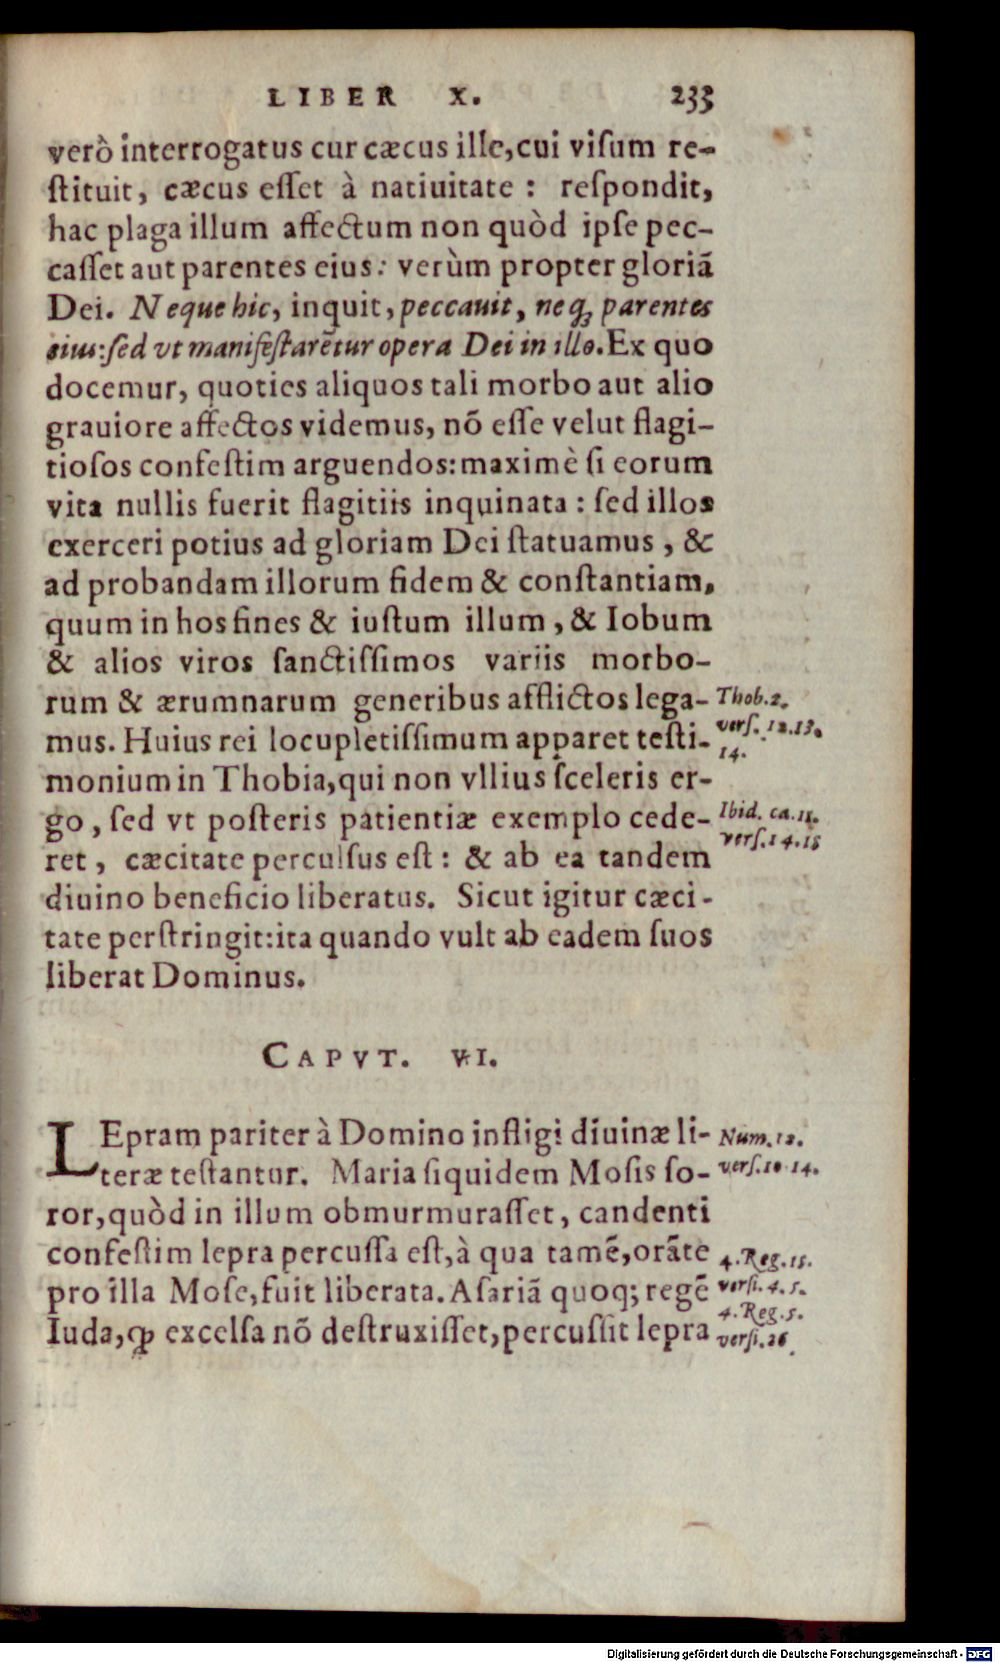 LIBER X. 233
verò interrogatus cur cæcus ille, cui visum re-
stituit, cæcus esset à natiuitate : respondit,
hac plaga illum affectum non quòd ipse pec-
casset aut parentes eius: verùm propter gloriā
Dei. Neque hic, inquit, peccauit, neq; parentes
eius: sed vt manifestarētur opera Dei in illo. Ex quo
docemur, quoties aliquos tali morbo aut alio
grauiore affectos videmus, nō esse velut flagi-
tiosos confestim arguendos: maximè si eorum
vita nullis fuerit flagitiis inquinata : sed illos
exerceri potius ad gloriam Dei statuamus , &
ad probandam illorum fidem & constantiam,
quum in hos fines & iustum illum , & Iobum
& alios viros sanctissimos variis morbo-
rum & ærumnarum generibus afflictos lega-
Thob.2.
vers. 12.13.
14.
mus. Huius rei locupletissimum apparet testi-
monium in Thobia, qui non vllius sceleris er-
go , sed vt posteris patientiæ exemplo cede-
Ibid. ca.11.
vers.14.15
ret , cæcitate perculsus est : & ab ea tandem
diuino beneficio liberatus. Sicut igitur cæci-
tate perstringit: ita quando vult ab eadem suos
liberat Dominus.
CAPVT. VI.
LEpram pariter à Domino infligi diuinæ li-
Num.12.
teræ testantur. Maria siquidem Mosis so-
vers.10 14.
ror, quòd in illum obmurmurasset, candenti
confestim lepra percussa est, à qua tamē, orāte
4.Reg.15.
pro illa Mose, fuit liberata. Asariā quoq; regē
versi.4.5.
4.Reg.5.
Iuda, ꝙ excelsa nō destruxisset, percussit lepra
versi.26
Digitalisierung gefördert durch die Deutsche Forschungsgemeinschaft - DFG